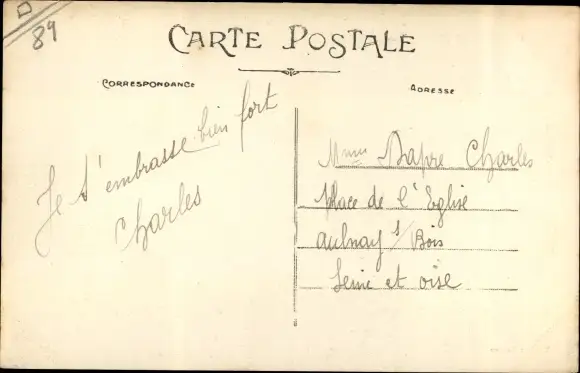 89
CARTE POSTALE
CORRESPONDANCE
ADRESSE
Je t'embrasse bien fort
Charles
Mme Dapre Charles
Place de l'Eglise
aulnay s/Bois
Seine et oise